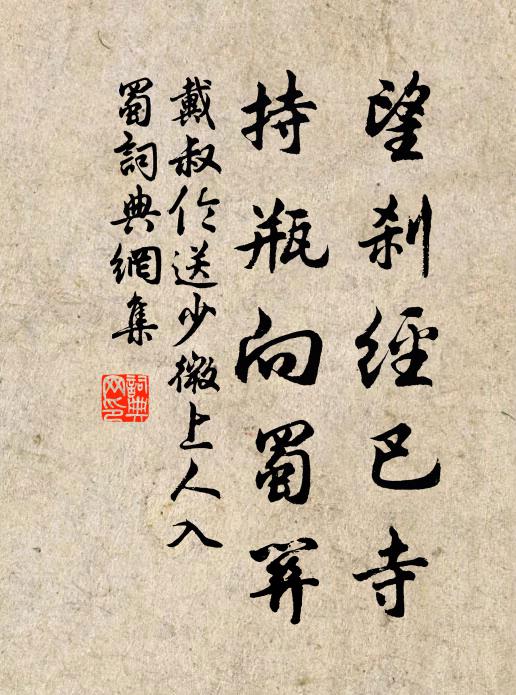 望刹經巴寺
持瓶向蜀關
戴叔伦送少微上人入
蜀詞典網集
詞典
网印